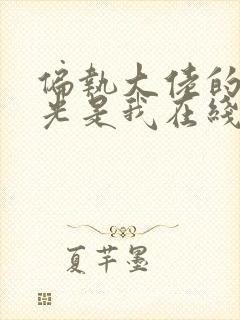 偏执大佬的
光是我在线
夏芊墨